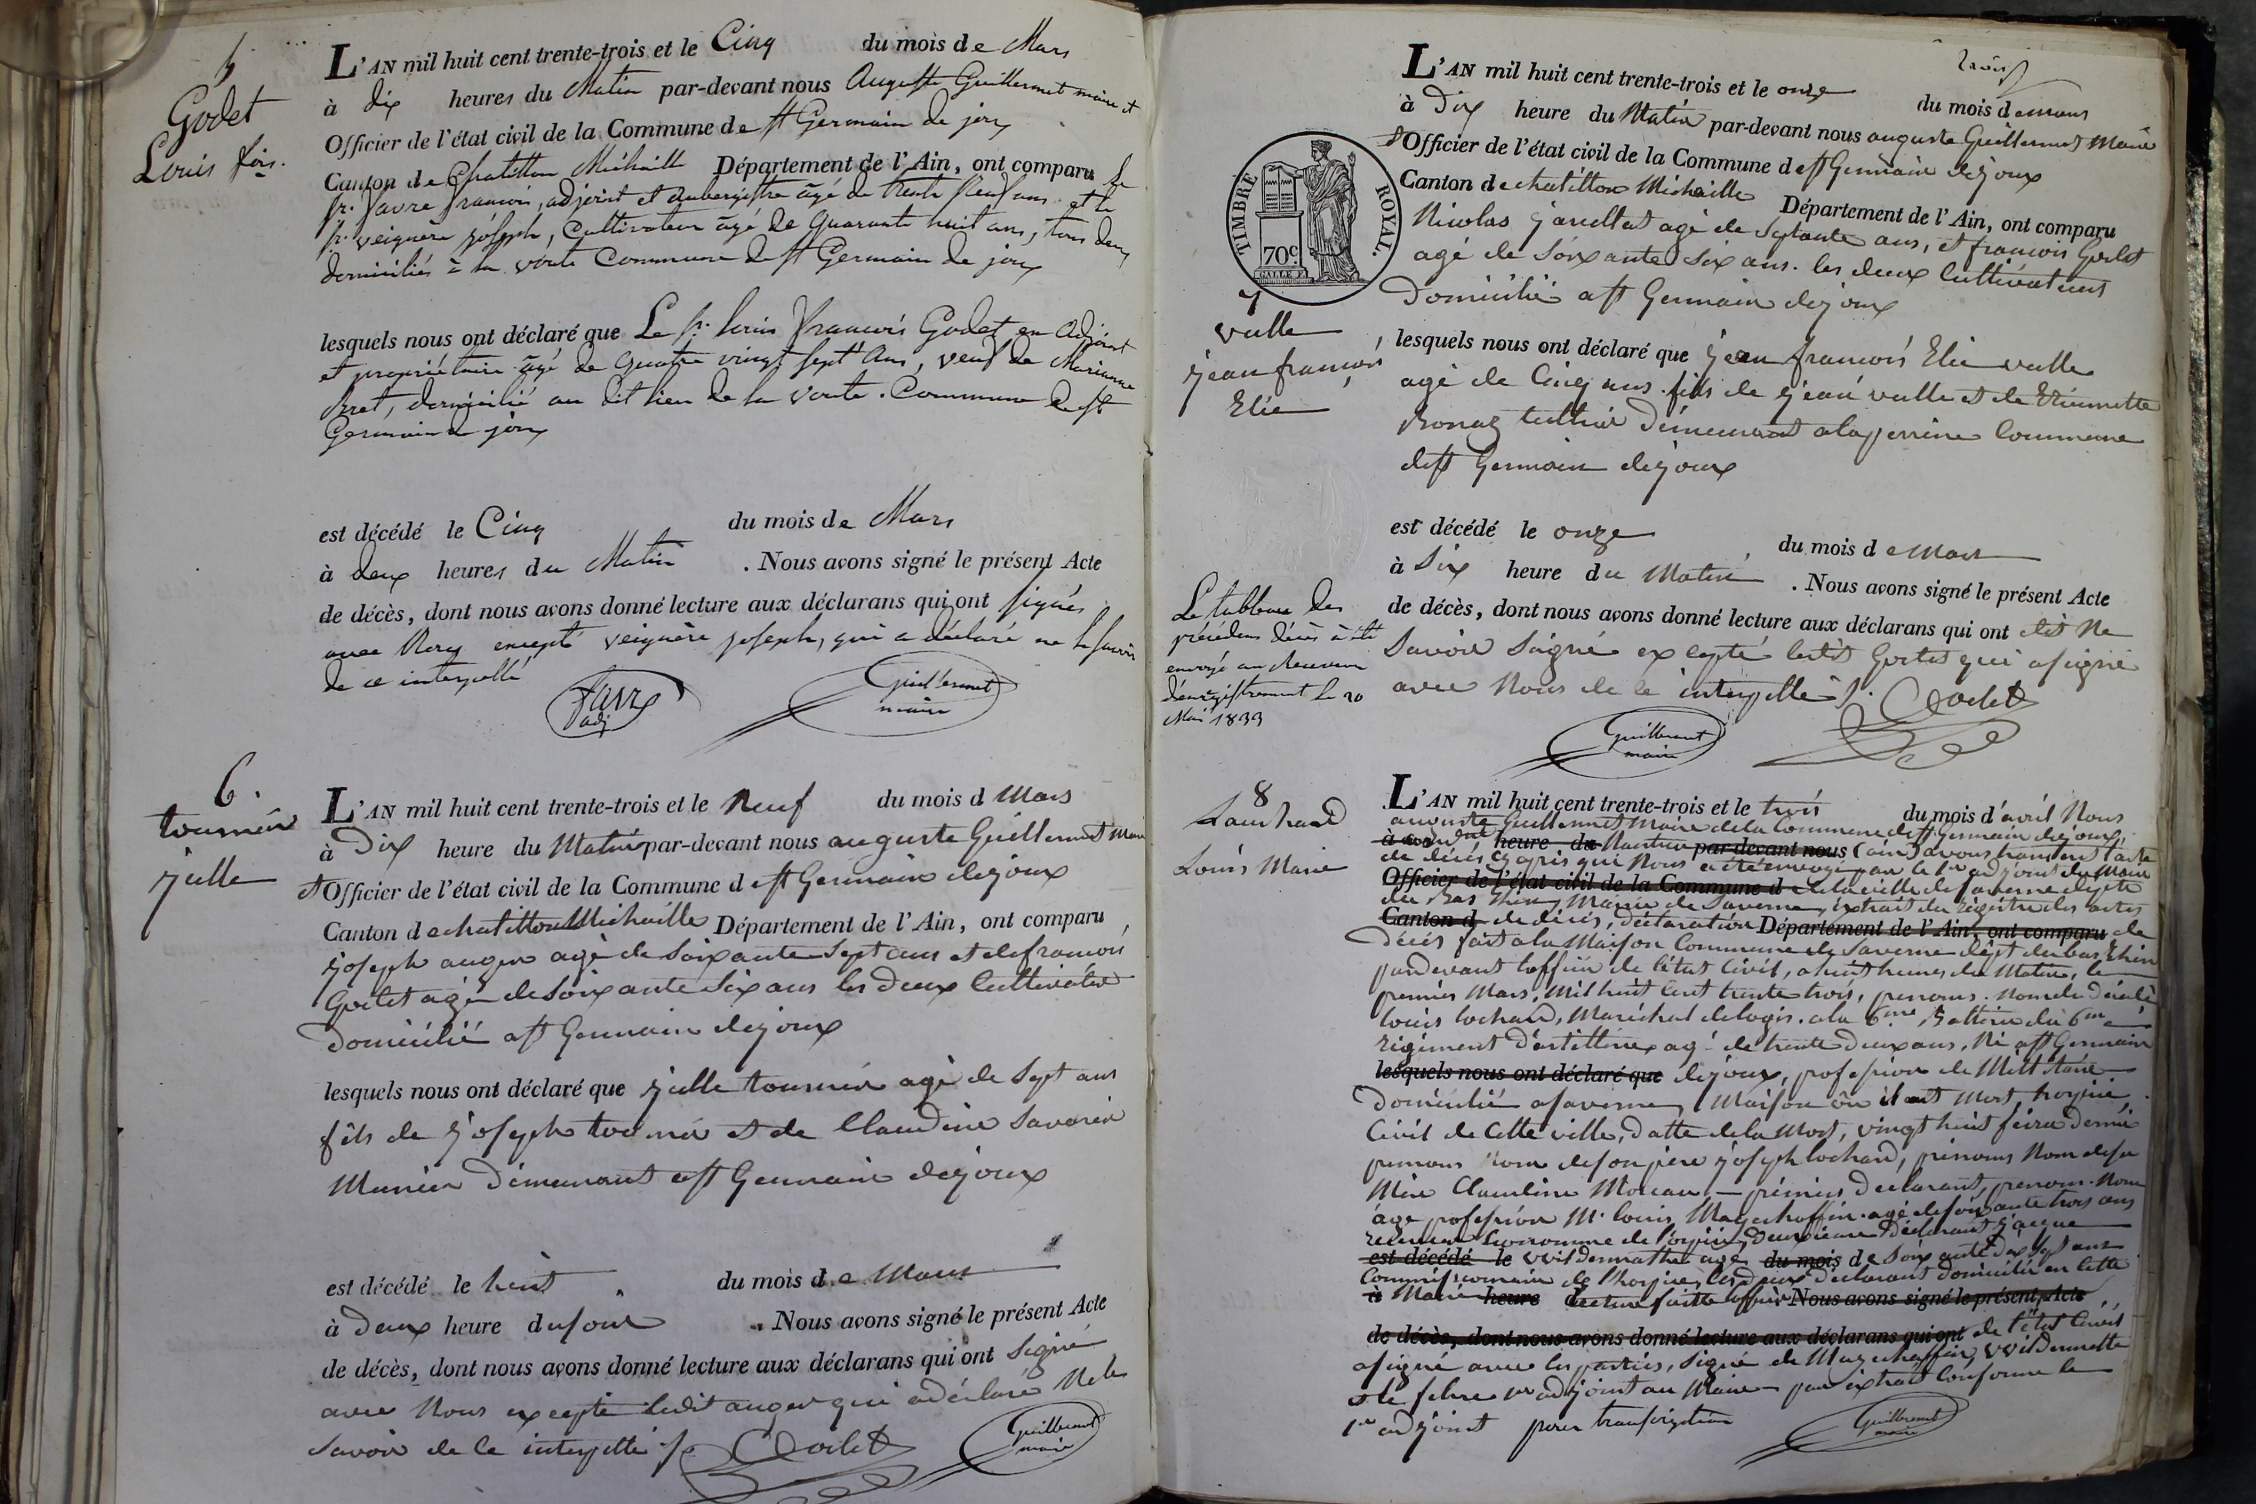 5
Godet
Louis fois.
L'AN mil huit cent trente-trois et le Cinq du mois de Mars
à dix heures du Matin par-devant nous Auguste Guillermet maire et
Officier de l'état civil de la Commune de st Germain de joux
Canton de Chatillon Michaille Département de l'Ain, ont comparu le
sr. favre françois, adjoint et aubergiste âgé de trente neuf ans et le
sr. veignère joseph, Cultivateur âgé de Quarante huit ans, tous deux
domiciliés à la voute Commune de st Germain de joux
lesquels nous ont déclaré que Le sr. louis françois Godet ex adjoint
et propriétaire âgé de Quatre vingt sept Ans, veuf de Marianne
Bret, domicilié au dit lieu de la voute. Commune de st
Germain de joux
est décédé le Cinq du mois de Mars
à deux heures du Matin . Nous avons signé le présent Acte
de décès, dont nous avons donné lecture aux déclarans qui ont signés
avec Nous excepté veignère joseph, qui a déclaré ne le savoir
de ce interpellé
favre
adj
Guillermet
maire
6.
tournier
julle
L'AN mil huit cent trente-trois et le Neuf du mois d Mars
à Dix heure du Matin par-devant nous auguste Guillermet Maire
et Officier de l'état civil de la Commune d est Germain dejoux
Canton d echatillon Michaille Département de l'Ain, ont comparu
joseph auger agé de soixante sept ans et de francois
Godet agé de soixante six ans les deux Cultivateur
Domicilié ast Germain dejoux
lesquels nous ont déclaré que julle tournier agé de sept ans
fils de joseph tournier et de Claudine Savarin
Munier Demeurant ast Germain dejoux
est décédé le huit du mois de Mars
à Deux heure du soir . Nous avons signé le présent Acte
de décès, dont nous avons donné lecture aux déclarans qui ont signé
avec Nous excepté ledit auger qui adéclaré Ne le
savoir de ce interpellé
Godet
Guillermet
maire
L'AN mil huit cent trente-trois et le onze du mois demars
à Dix heure du Matin par-devant nous auguste Guillermet Maire
et Officier de l'état civil de la Commune d est Germain dejoux
Canton d echatillon Michaille Département de l'Ain, ont comparu
Nicolas agé de septante ans, et francois Godet
agé de soixante six ans. les deux Cultivateurs
Domicilié ast Germain dejoux
TIMBRE ROYAL.
70c.
7
vulle
jean françois
Elie
lesquels nous ont déclaré que jean francois Elie vulle
agé de Cinq ans. fils de jean vulle et de Etiennette
Ronaz Demeurant alaperrine Commune
dest Germain dejoux
est décédé le onze du mois d emars
à Six heure du Matin . Nous avons signé le présent Acte
de décès, dont nous avons donné lecture aux déclarans qui ont dit Ne
Savoir Signé excepté ledit Godet qui asigné
avec Nous de ce interpellé
Godet
Guillermet
maire
Le tableau des
précédens décès à été
envoyé au Receveur
d'enregistrement le 20
Mars 1833
8
Lauchard
Louis Marie
L'AN mil huit cent trente-trois et le trois du mois d'avril Nous
auguste Guillermet Maire dela Commune dest Germain dejoux,
à heure du Nantua par-devant nous (ain) avons transcrit l'acte
de décés cy apris qui Nous a été envoyé par le 1er adjoint du Maire
Officier de l'état civil de la Commune d de la ville de saverne dépte
du Bas Rhin, Mairie de Saverne, extrait du régistre des actes
Canton d de décés, Déclaration Département de l'Ain, ont comparu de
Décés fait a la Maison Commune de Saverne dépt du bas Rhin
pardevant l'officier de l'état Civil, a huit heures du Matin, le
premier Mars, mil huit Cent trente trois, prenoms. Nom du Décédé
louis lochard, Maréchal de logis. ala 6me Batterie du 6me
régiment d'artillerie, agé de trente deux ans, Né ast Germain
lesquels nous ont déclaré que dejoux, profession de Militaire
Domicilié asaverne, Maison où il est Mort hospice
Civil de Cette ville, datte dela Mort, vingt huit fevrie Dernié
prenoms Nom de son père joseph lochard, prénoms Nom de sa
Mère Claudine Moreau — prémier Declarant, prenom. Nom
âge profession Mr. louis Mayerhoffer. agé de soixante trois ans
receveur économe de l'ospice, Deuxieme Déclarant jacque
est décédé le vvildermuthe agé du mois de soixante Dix sept ans
Commissionnaire de l'hospice, les deux Declarant Domicilié en Cette
à Mairie heure Lecture faitte Nous avons signé le présent Acte
de décès, dont nous avons donné lecture aux déclarans qui ont de l'état Civil
asigné avec les parties, signé de Mayerhoffer, vvildermuthe
et le febvre 1er adjoint au Maire par extrait Conforme le
1er adjoint pour transcription
Guillermet
maire